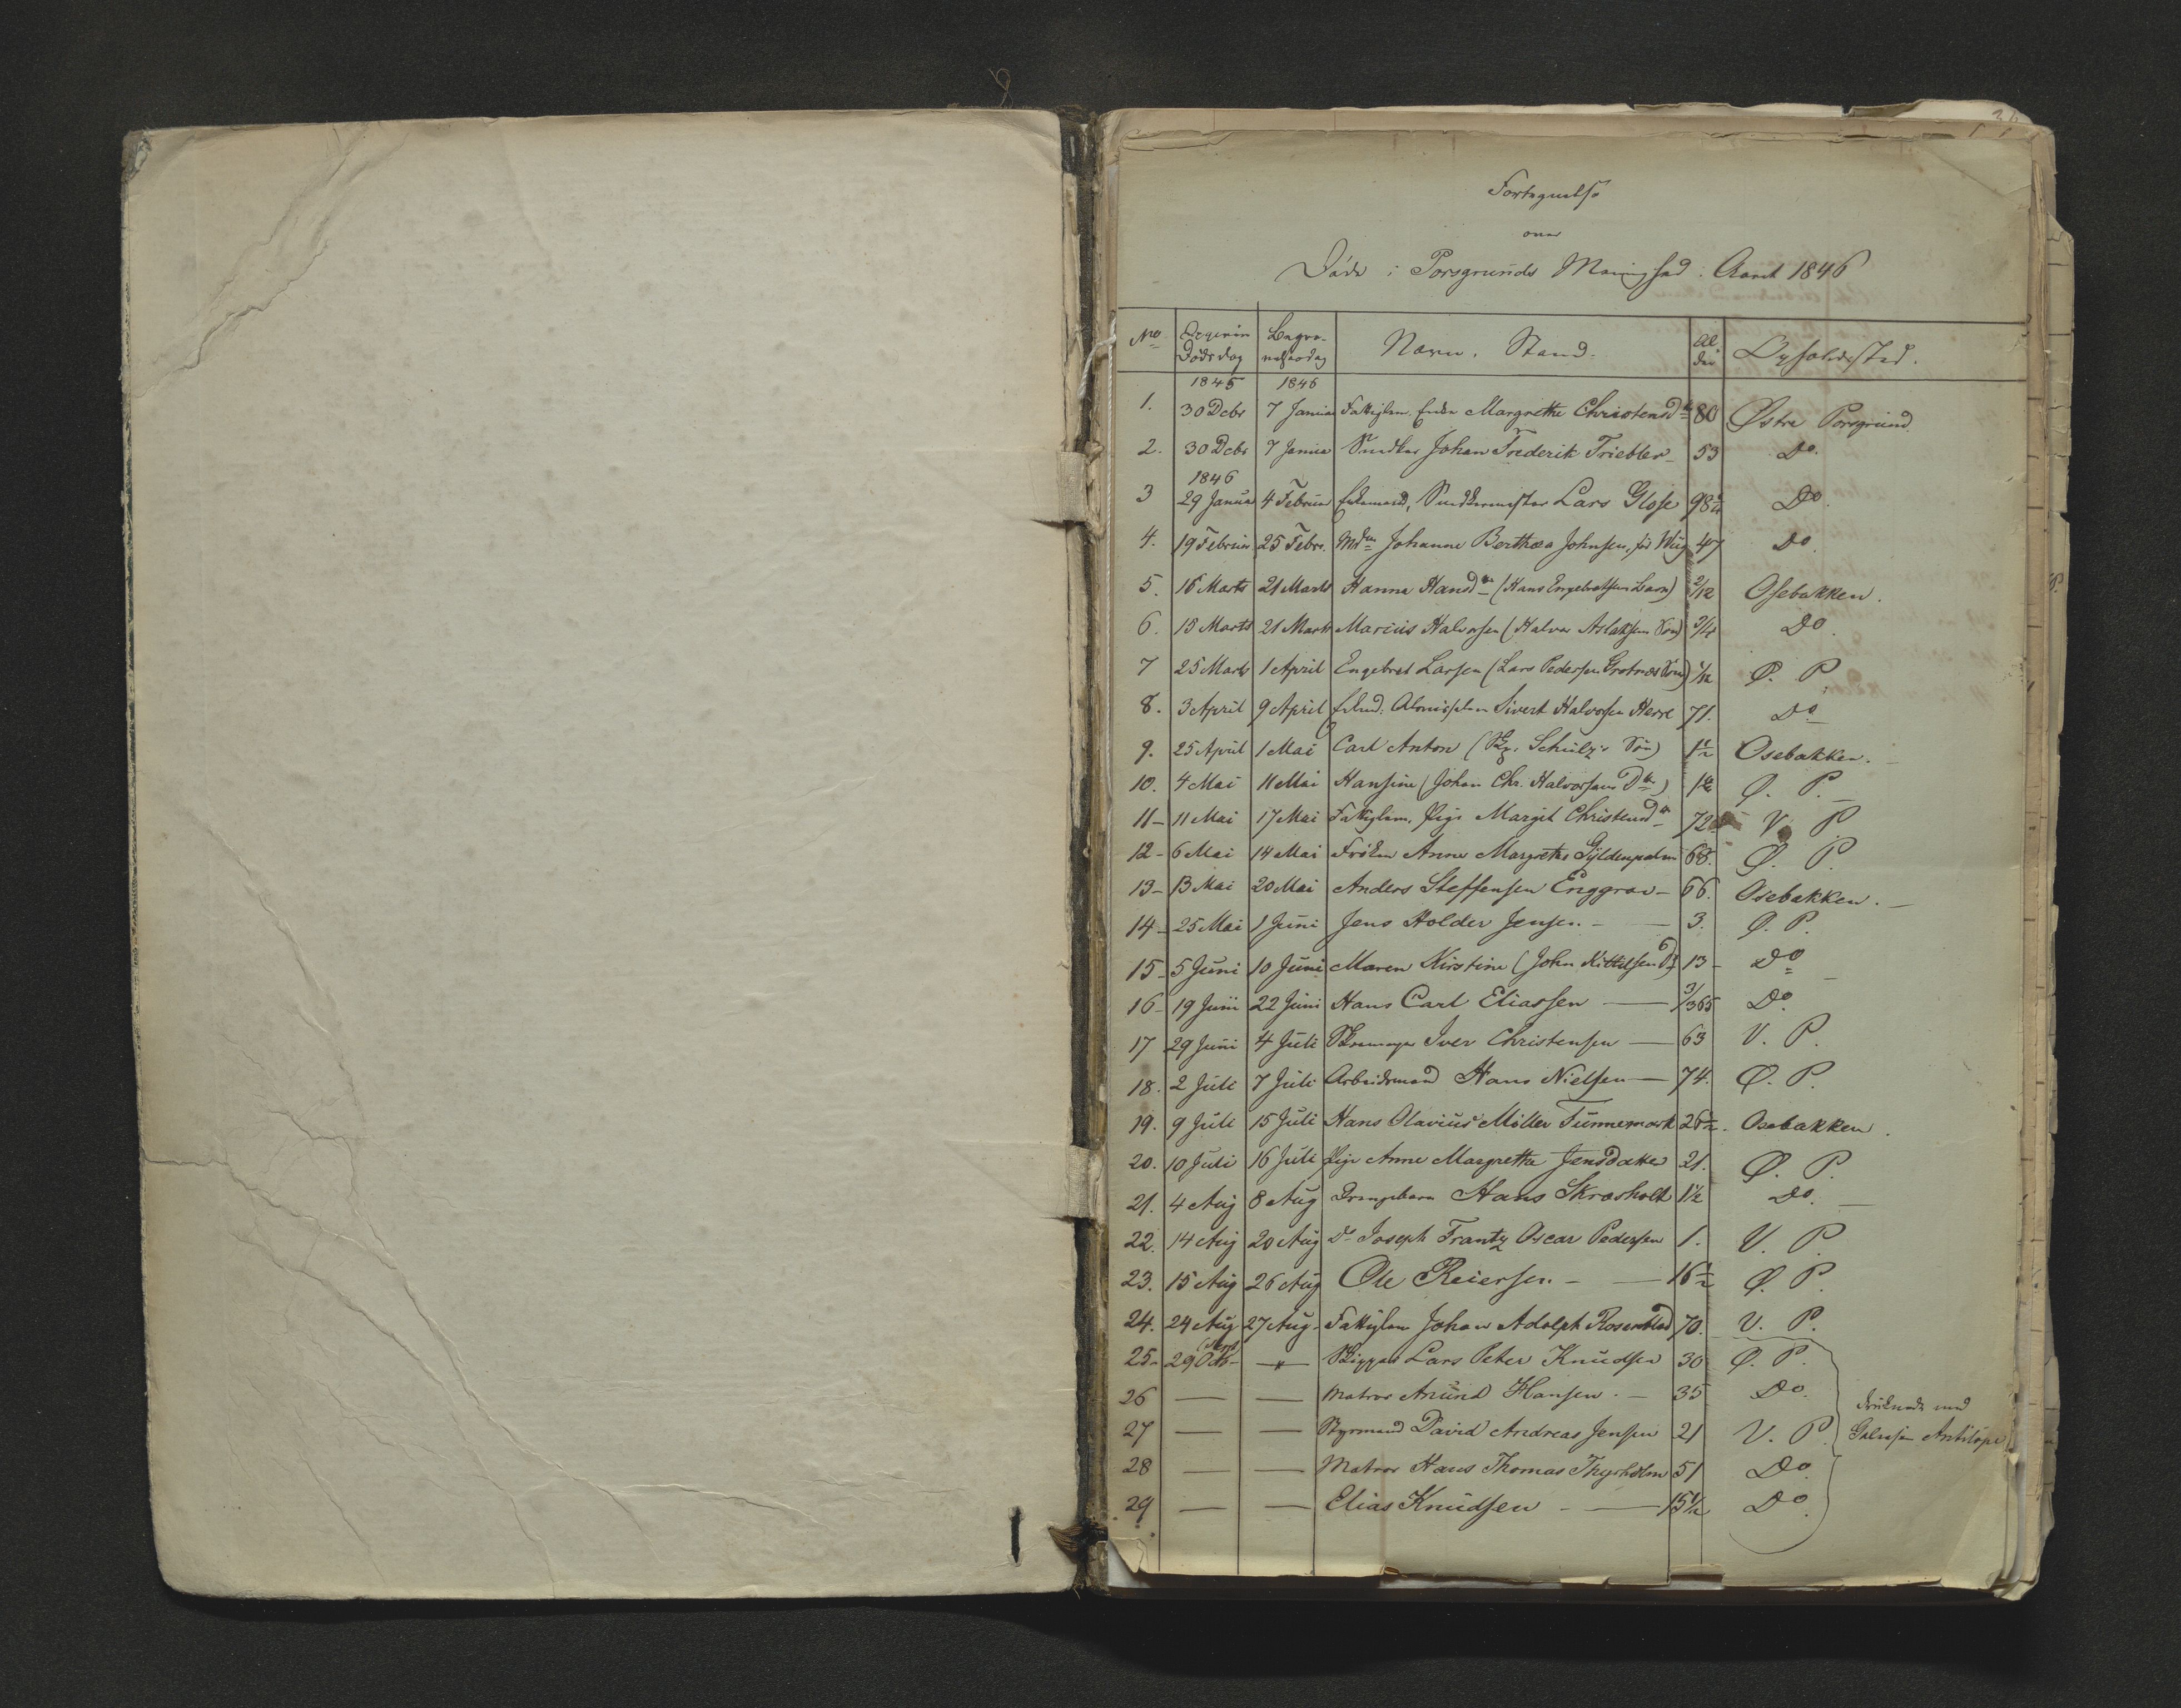 Fortegnelse
over
Døde i Porsgrunds Menighed i Aaret 1846
No Dødsdag Begravelsesdag Navn. Stand. Alder Opholdssted.
1845 1846
1. 30 Decbr 7 Januar Fattiglem. Enke Margrethe Christensdtr 80 Østre Porsgrund
2. 30 Decbr 7 Januar Snedker Johan Frederik Triebler 53 Do.
1846
3 29 Januar 4 Februar Enkemand, Snedkermester Lars Glose 98 Do.
4. 19 Februar 25 Febr. Mdm Johanne Berthea Johnsen, fød Wiig 47 Do.
5. 16 Marts 21 Marts Hanna Hansdtr (Hans Engebretsens Barn) 2/12 Osebakken.
6. 15 Marts 21 Marts Marius Halvorsen (Halvor Aslaksens Søn) 3/4 Do.
7 25 Marts 1 April Engebret Larsen (Lars Pedersen Grotnes Søn) 1/12 Ø. P.
8. 3 April 9 April Enkmd. Almisselem Sivert Halvorsen Herre 71. Do.
9. 25 April 1 Mai Carl Anton (Schulz's Søn) 1 1/2 Osebakken.
10. 4 Mai 11 Mai Hansine (Johan Chr. Halvorsens Dtr) 1 1/2 Ø. P.
11 11 Mai 17 Mai Fattiglem, Pige Margit Christensdtr 72 V. P.
12 6 Mai 14 Mai Frøken Anne Margrethe Gyldenpalm 68. Ø. P.
13 13 Mai 20 Mai Anders Steffensen Enggrav 66. Osebakken.
14 25 Mai 1 Juni Jens Holder Jensen 3. Ø. P.
15 5 Juni 10 Juni Maren Kirstine (John Kittilsen Dtr) 13 Do
16 19 Juni 22 Juni Hans Carl Eliassen 3/365 Do.
17 29 Juni 4 Juli Skomager Iver Christensen 63 V. P.
18. 2 Juli 7 Juli Arbeidsmand Hans Nielsen 74. Ø. P.
19. 9 Juli 15 Juli Hans Olavius Møller Tunnemark 26 1/2. Osebakken.
20. 10 Juli 16 Juli Pige Anne Margrethe Jensdatter 21. Ø. P.
21. 4 Aug 8 Aug Drengebarn Hans Skrasholt 1 1/2 Do.
22. 14 Aug 20 Aug Do Joseph Frantz Oscar Pedersen 1. V. P.
23. 15 Aug 26 Aug Ole Reiersen 16 1/2 Ø. P.
24. 24 Aug 27 Aug. Fattiglem Johan Adolph Rosenblad 70. V. P.
25 29 Oct Skipper Lars Peter Knudsen 30 Ø. P.
26 — — Matros Anund Hansen. 35 Do.
27 — — Styrmand David Andreas Jensen 21 V. P. druknede med Galeasen Antilope
28 — — Matros Hans Thomas Thyrholm 51 Do.
29 — — Elias Knudsen 15 1/2 Do.